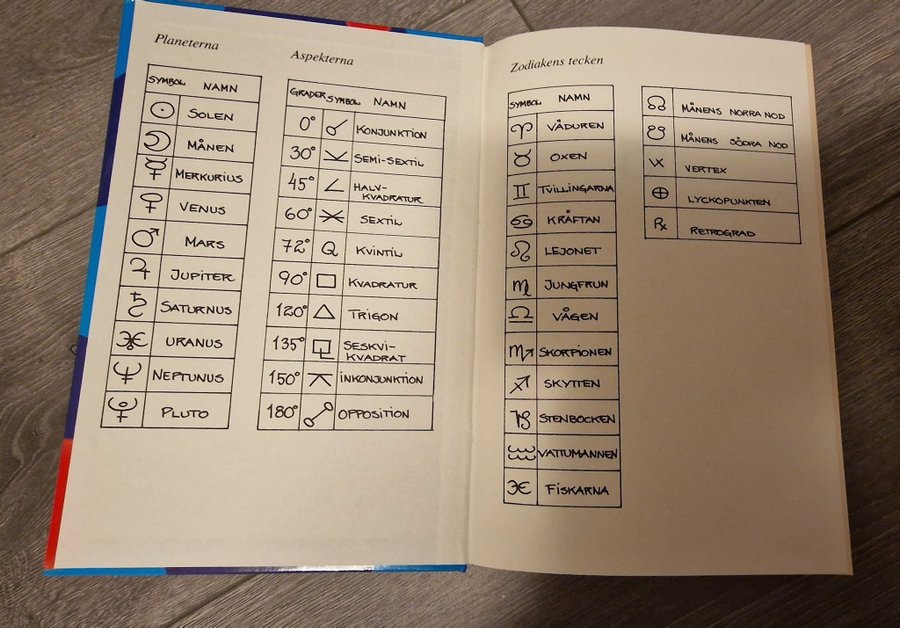 Planeterna
SYMBOL NAMN
☉ SOLEN
☽ MÅNEN
☿ MERKURIUS
♀ VENUS
♂ MARS
♃ JUPITER
♄ SATURNUS
♅ URANUS
♆ NEPTUNUS
♇ PLUTO
Aspekterna
GRADER SYMBOL NAMN
0° ☌ KONJUNKTION
30° ⚺ SEMI-SEXTIL
45° ∠ HALV-
KVADRATUR
60° ⚹ SEXTIL
72° Q KVINTIL
90° □ KVADRATUR
120° △ TRIGON
135° ⚼ SESKVI-
KVADRAT
150° ⚻ INKONJUNKTION
180° ☍ OPPOSITION
Zodiakens tecken
SYMBOL NAMN
♈ VÄDUREN
♉ OXEN
♊ TVILLINGARNA
♋ KRÄFTAN
♌ LEJONET
♍ JUNGFRUN
♎ VÅGEN
♏ SKORPIONEN
♐ SKYTTEN
♑ STENBOCKEN
♒ VATTUMANNEN
♓ FISKARNA
☊ MÅNENS NORRA NOD
☋ MÅNENS SÖDRA NOD
VX VERTEX
⊕ LYCKOPUNKTEN
℞ RETROGRAD